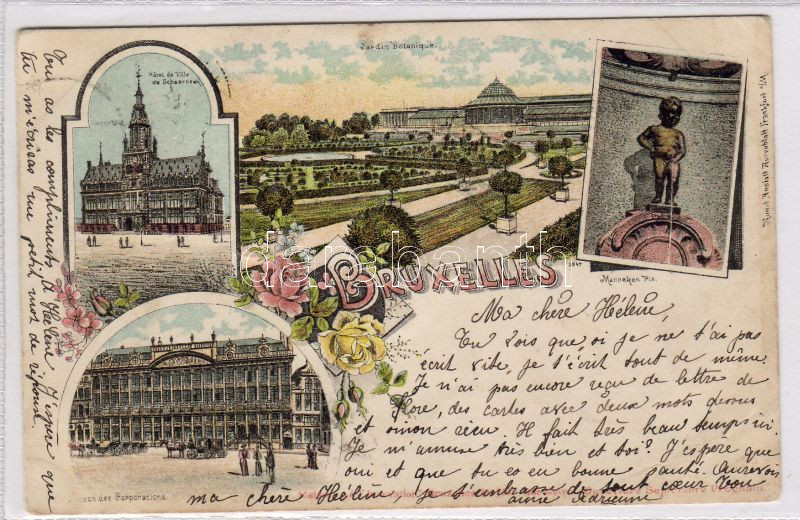 Jardin Botanique.
Hôtel de Ville
de Schaerbeek
BRUXELLES
2847
Manneken Pis.
Kunst Anstalt Rosenblatt Frankfurt a/M.
son des Corporations.
darabanth
Ma chère Hélène,
Tu vois que, si je ne t'ai pas
écrit vite, je t'écrit tout de même.
Je n'ai pas encore reçu de lettre de
Flore, des cartes avec deux mots dessus
et sinon rien. Il fait très beau temps ici.
Je m'amuse très bien et toi? J'espère que
oui et que tu es en bonne santé. Aurevoir
ma chère Hélène, je t'embrasse de tout cœur Ton
amie
Tu as les compliments à Hélène. J'espère que
tu m'écriras un petit mot de réponse.